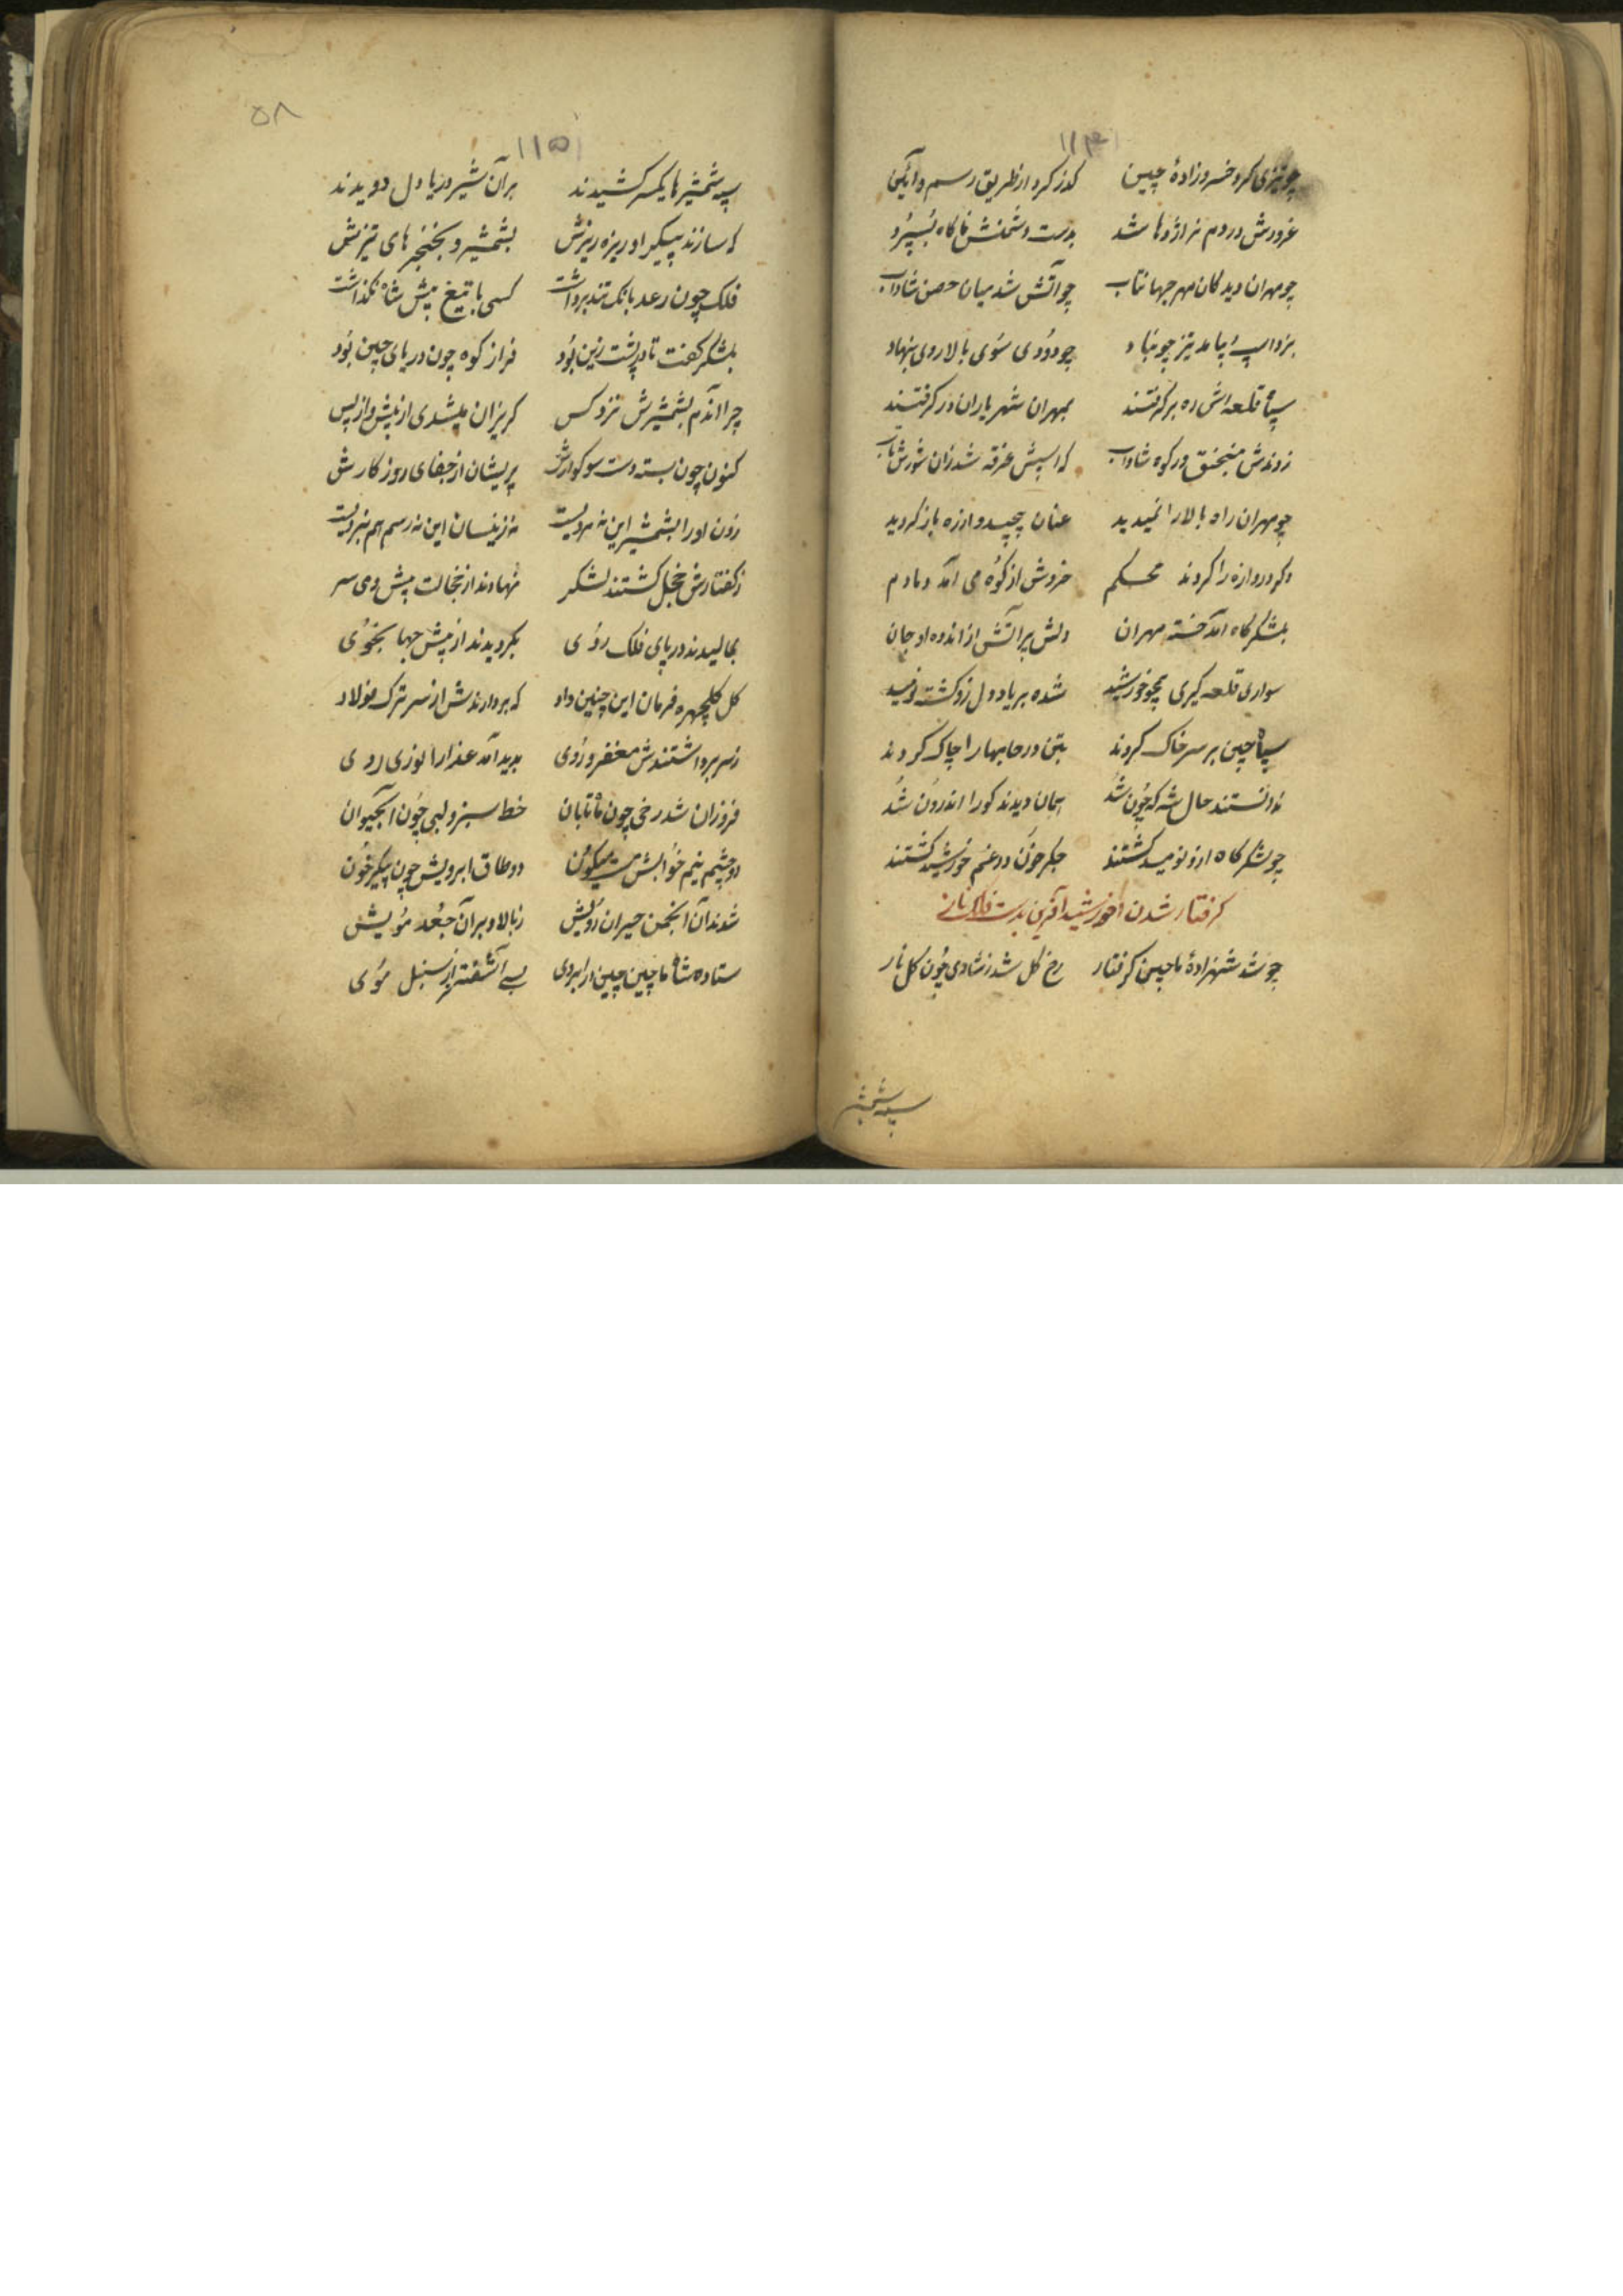 ۱۱۴
چو تیزی کرد خسرو زادهٔ چین کذر کرد از طریق رسم و آیین
غرورش در دم نر اژدها شد بدست دشمنش ناکاه بسپرد
چو مهران دید کان مهر جهانتاب چو آتش شد میان حصن شاداب
بزد اسپ بیامد تیز چون باد چو دودی سوی بالا روی بنهاد
سپاه قلعه اش ره برکرفتند بمهران شهر یاران درکرفتند
زدندش منجنیق در کوه شاداب که اسپش غرقه شد زان شورش ناب
چو مهران راه بالا را نمیدید عنان پیچید وازره بازکردید
دکر دروازه را کردند محکم خروش از کوه می آمد دمادم
بلشکرکاه آمد خسته مهران دلش پر آتش از اندوه او جان
سواری قلعه کیری همچو خورشید شده بر باد و دل زو کشته نومید
سپاه چین بر سر خاک کردند بتن در جامها را چاک کردند
ندانستند حال شه که چون شد همان دیدند کو را اندرون شد
چو لشکرکاه ازو نومید کشتند جکر خون در غم خورشید کشتند
کرفتار شدن خورشید آفرین بدست فلک نازنی
چو شد شهزادهٔ ماچین کرفتار رخ کل شد ز شادی چون کل نار
سپه شمشیر
۵۸
۱۱۵
سپه شمشیر ها یکسر کشیدند بر آن شیر دریا دل دویدند
که سازند پیکر او ریزه ریزش بشمشیر و بخنجر های تیزش
فلک چون رعد بانک تند برداشت کسی با تیغ پیش شاه نکذاشت
بلشکر کفت تا در پشت زین بود فراز کوه چون دریای چین بود
چرا آندم بشمشیرش نزد کس کریزان میشدی از پیش و از پس
کنون چون بسته دست سوکوارش پریشان از جفای روز کارش
زدن او را بشمشیر این نه مردیست نه زینسان این نه رسم هم نبردیست
ز کفتارش خجل کشتند لشکر نهادند از خجالت پیش وی سر
بمالیدند در پای فلک روی بکردیدند از پیش جهانجوی
کل کلچهره فرمان این چنین داد که بردارندش از سر ترک فولاد
ز سر برداشتندش مغفر و روی پدید آمد عذارا نوزی روی
فروزان شد رخی چون ماه تابان خط سبز و لبی چون آب حیوان
دو چشم نیم خوابش مست میکون دو طاق ابرویش چون پیکر خون
شدند آن انجمن حیران رویش ز بالا و بر آن جعد مویش
ستاده شاه ماچین چین در ابروی بسی آشفته تر از سنبل موی